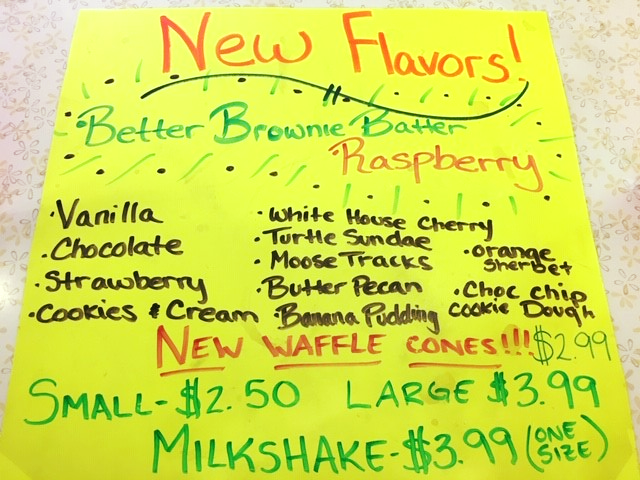 New Flavors!
Better Brownie Batter
Raspberry
·Vanilla
·Chocolate
·Strawberry
·Cookies & Cream
·White House Cherry
·Turtle Sundae
·Moose Tracks
·Butter Pecan
·Banana Pudding
·orange
Sherbet
·Choc chip
cookie Dough
NEW WAFFLE CONES!!! $2.99
SMALL-$2.50 LARGE $3.99
MILKSHAKE-$3.99 (ONE
SIZE)